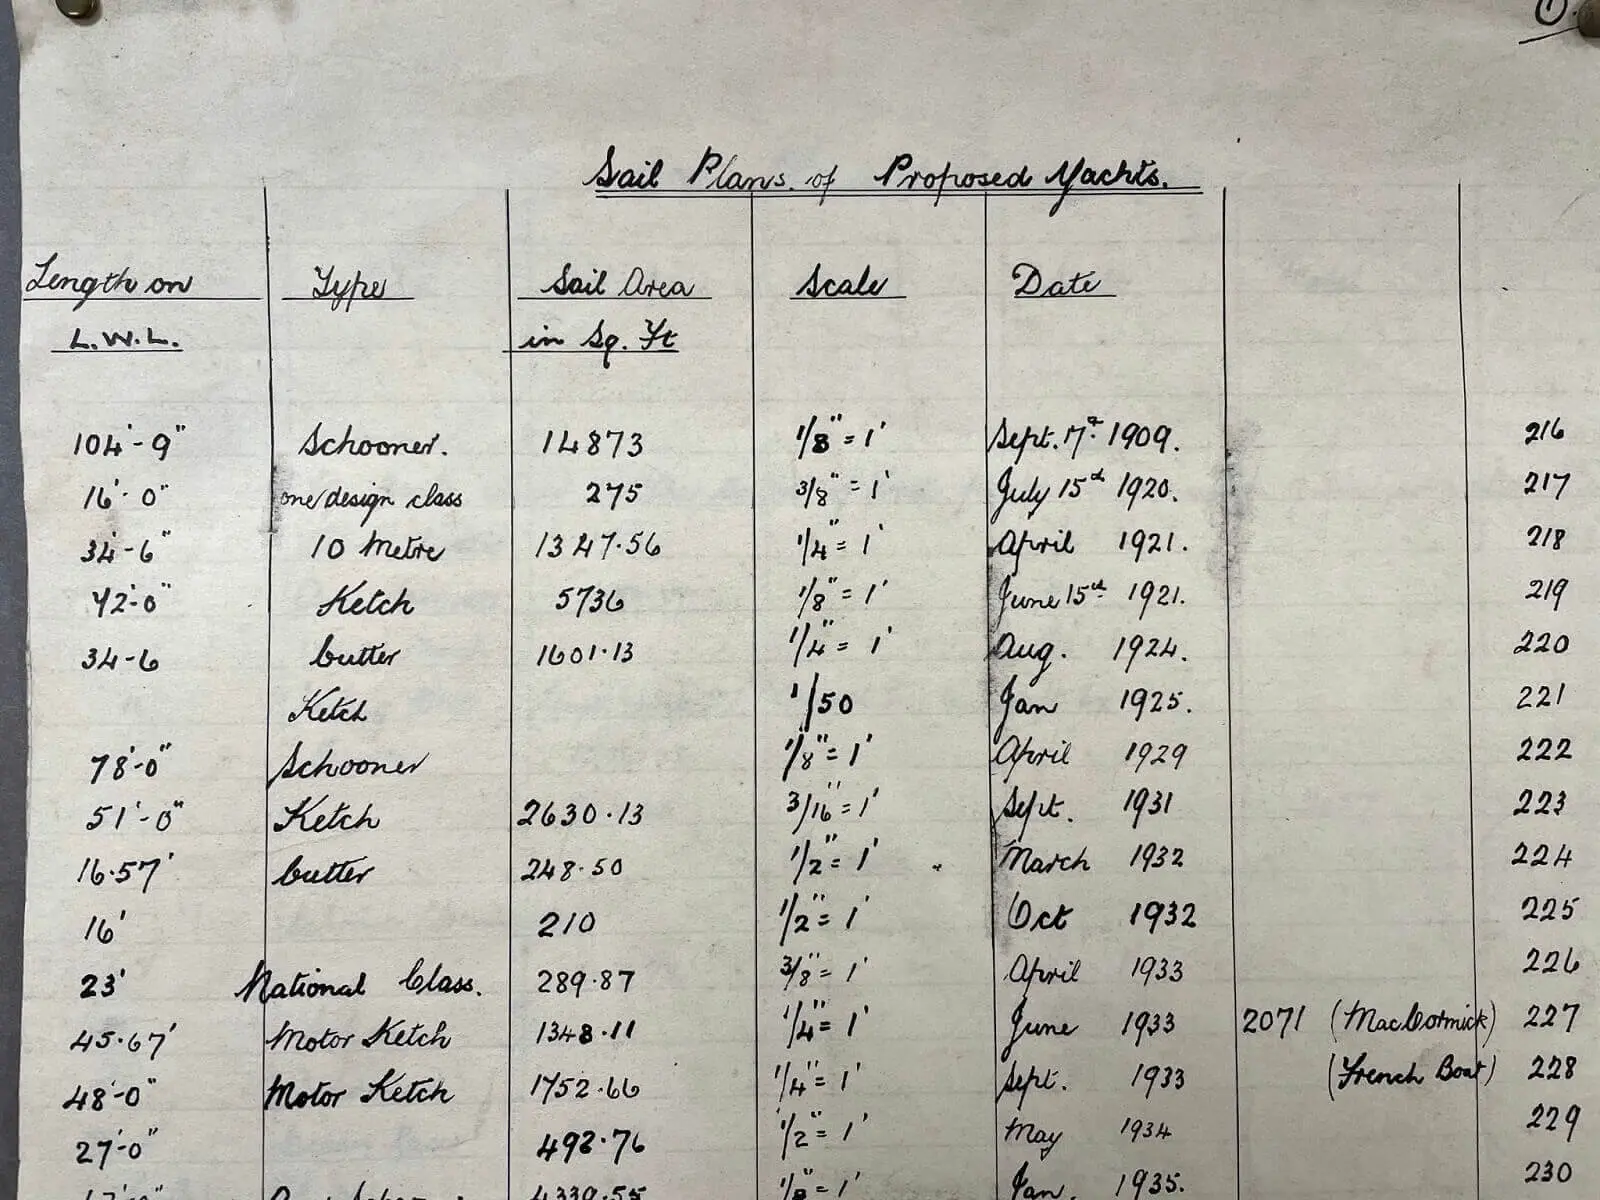 1.
Sail Plans. of Proposed Yachts.
Length on Type Sail Area Scale Date
L.W.L. in Sq. Ft
104'-9" Schooner. 14873 1/8" = 1' Sept. 7th 1909. 216
16'-0" one design class 275 3/8" = 1' July 15th 1920. 217
34'-6" 10 Metre 1347.56 1/4" = 1' April 1921. 218
72'-0" Ketch 5736 1/8" = 1' June 15th 1921. 219
34-6 Cutter 1601.13 1/4" = 1' Aug. 1924. 220
Ketch 1/50 Jan 1925. 221
78'-0" Schooner 1/8" = 1' April 1929 222
51'-0" Ketch 2630.13 3/16" = 1' Sept. 1931 223
16.57' Cutter 248.50 1/2" = 1' March 1932 224
16' 210 1/2" = 1' Oct 1932 225
23' National Class. 289.87 3/8" = 1' April 1933 226
45.67' Motor Ketch 1348.11 1/4" = 1' June 1933 2071 (MacCormick) 227
48'-0" Motor Ketch 1752.66 1/4" = 1' Sept. 1933 (French Boat) 228
27'-0" 492.76 1/2" = 1' May 1934 229
4339.55 1/8" = 1' Jan. 1935. 230